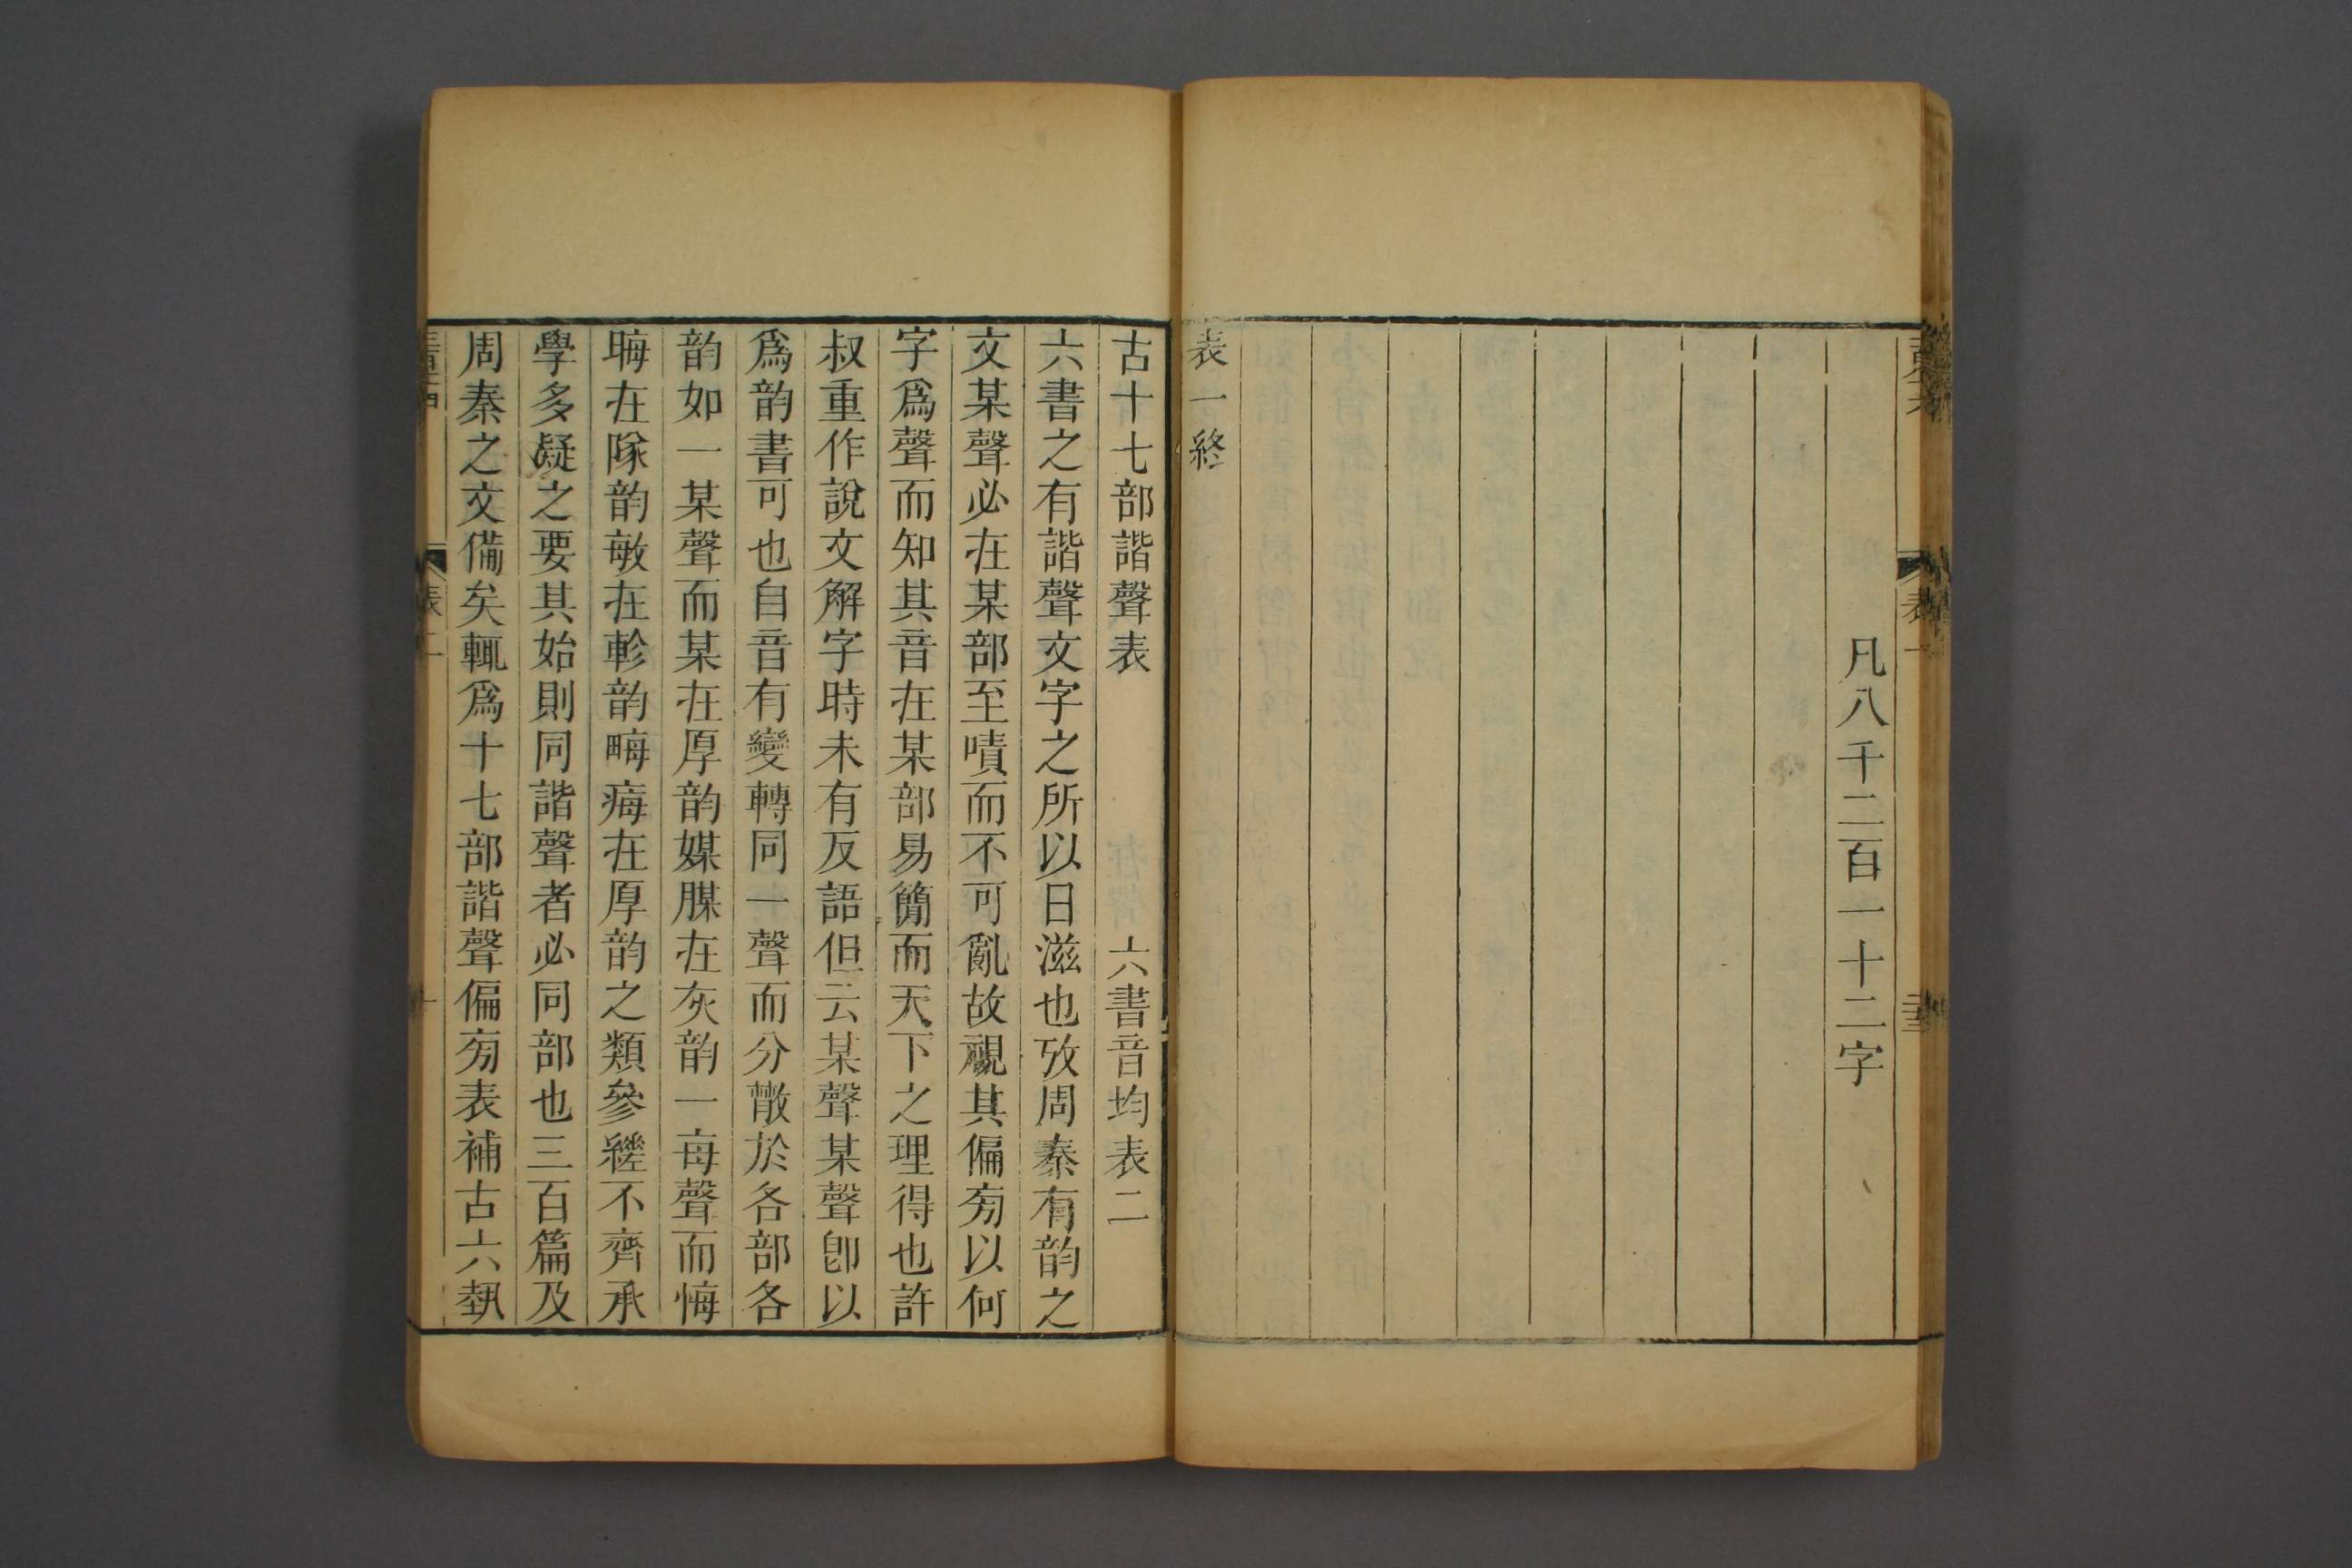 凡八千二百一十二字
表一終
古十七部諧聲表 六書音均表二
六書之有諧聲文字之所以日滋也攷周秦有韵之
文某聲必在某部至嘖而不可亂故視其偏㫄以何
字爲聲而知其音在某部易簡而天下之理得也許
叔重作說文解字時未有反語但云某聲某聲卽以
爲韵書可也自音有變轉同一聲而分散於各部各
韵如一某聲而某在厚韵媒腜在灰韵一每聲而悔
晦在隊韵敏在軫韵畮痗在厚韵之類參縒不齊承
學多疑之要其始則同諧聲者必同部也三百篇及
周秦之文備矣輒爲十七部諧聲偏㫄表補古六埶